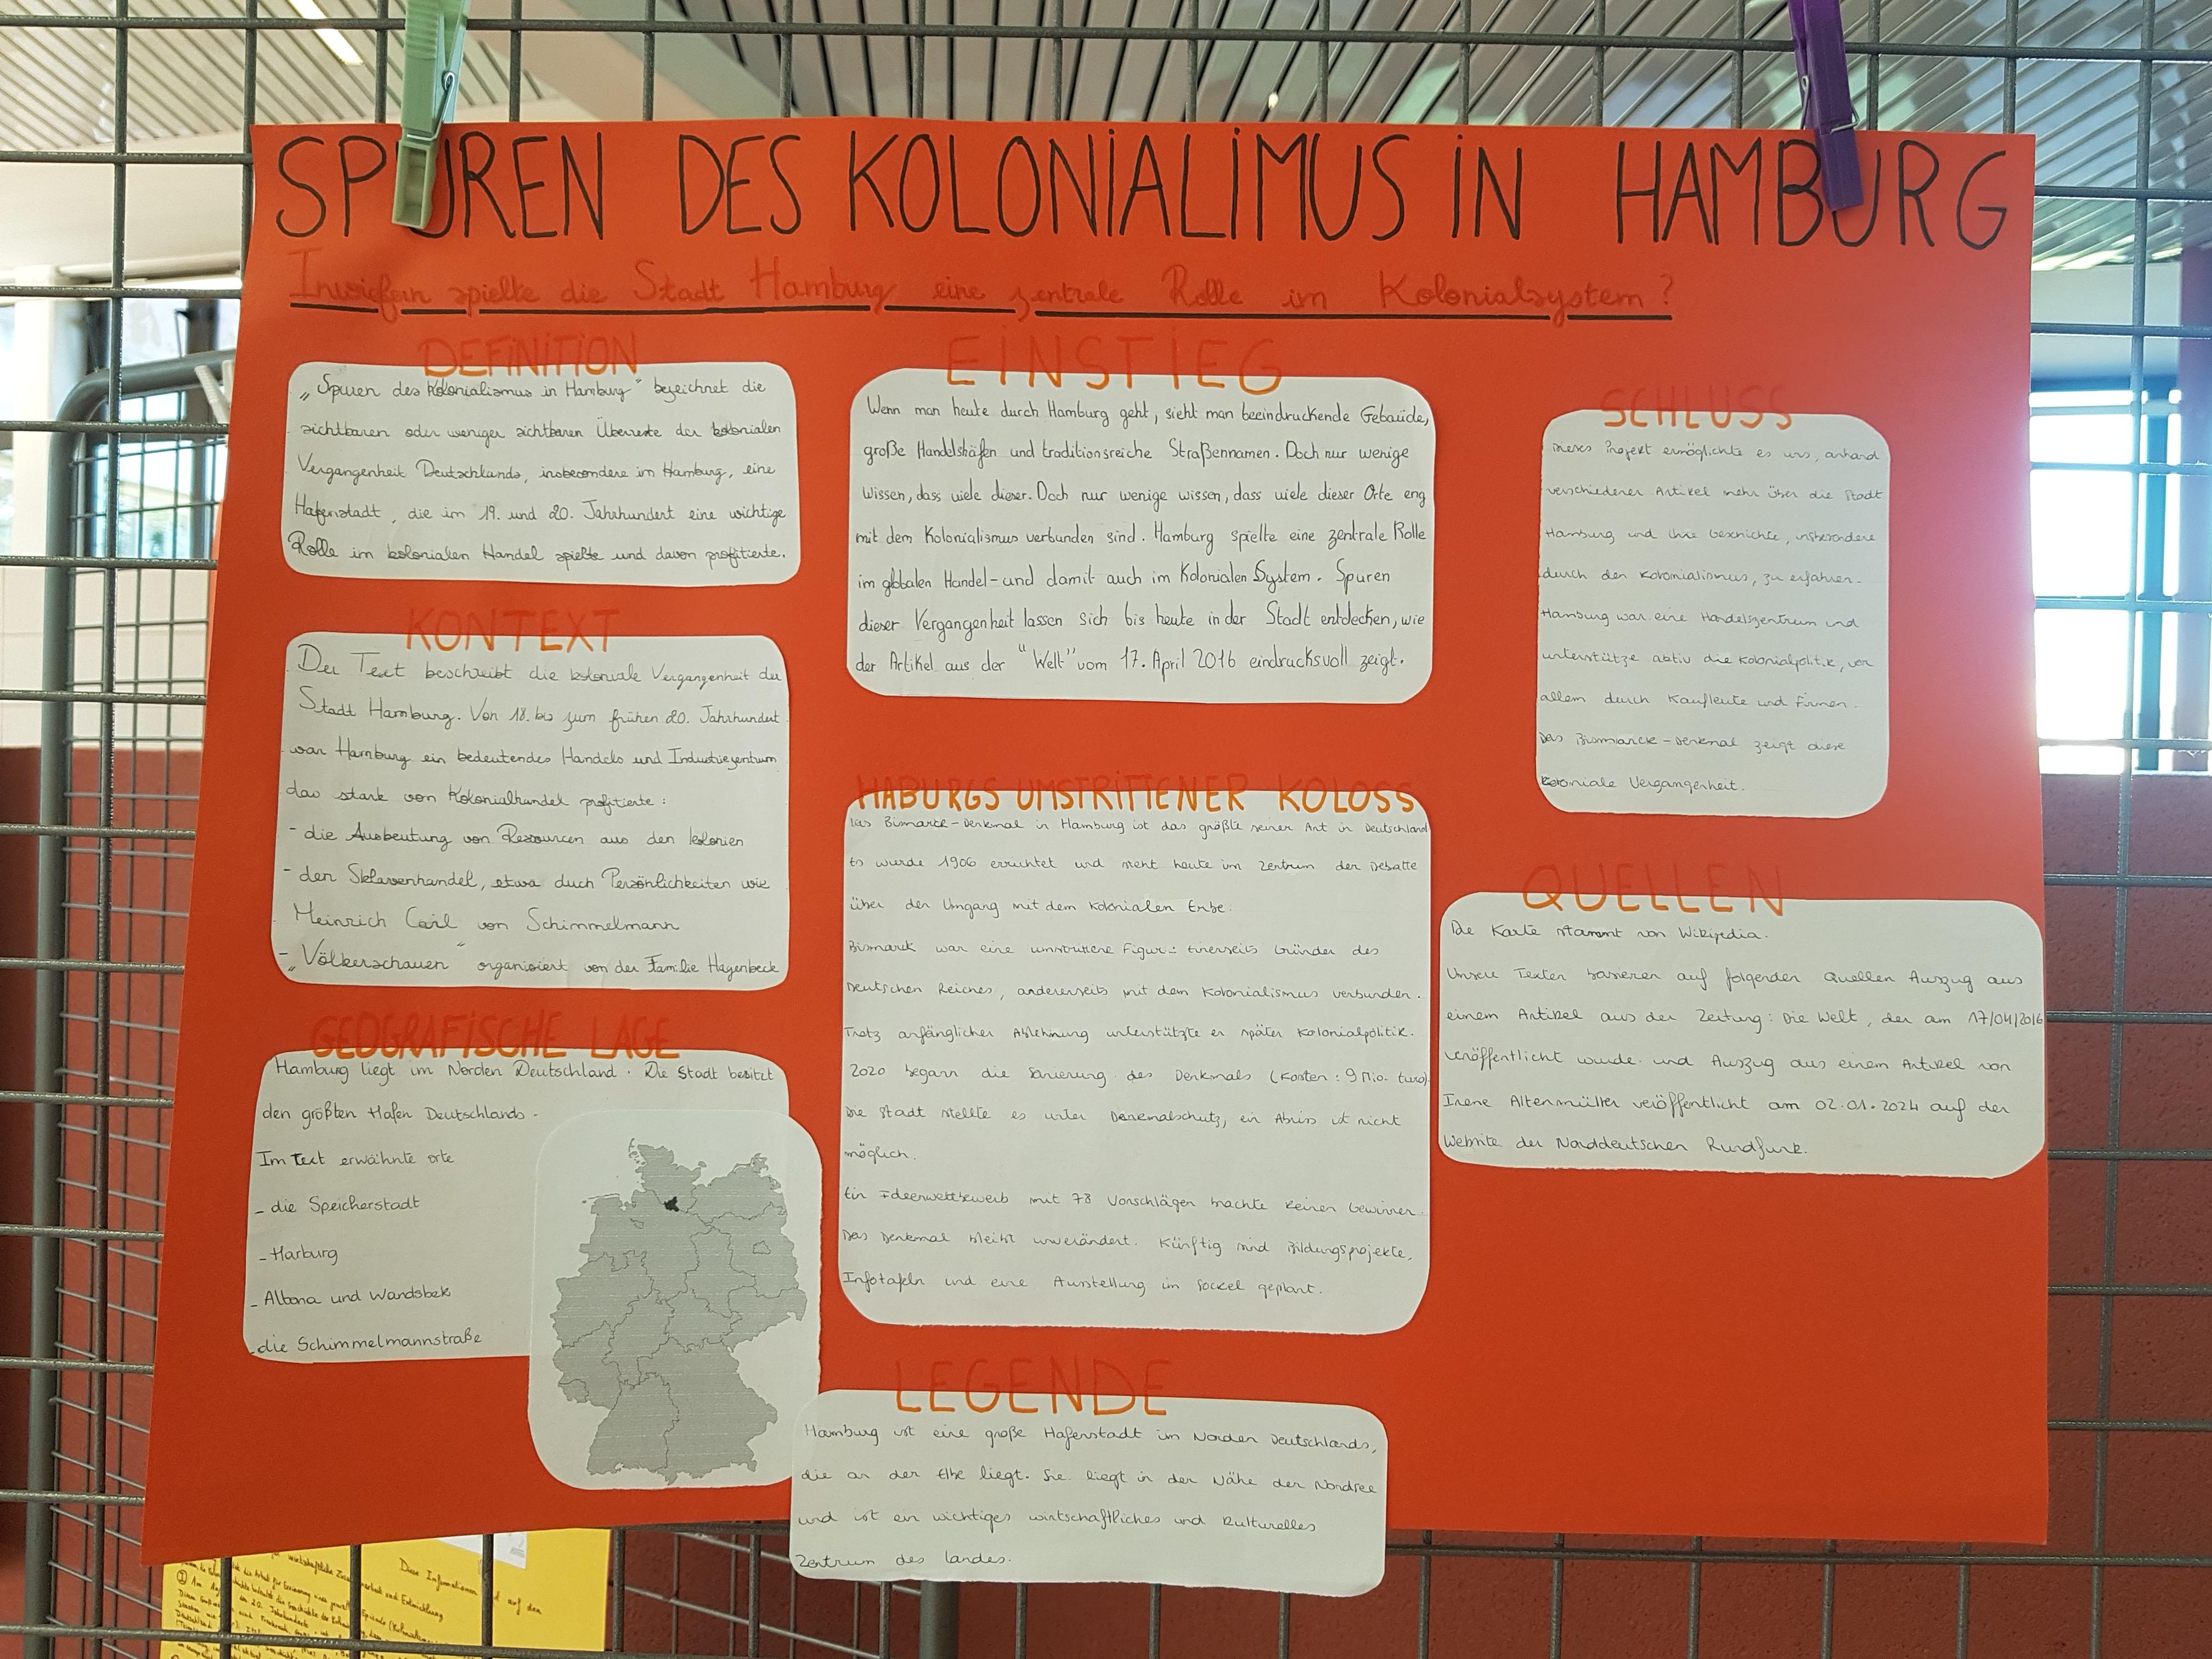 SPUREN DES KOLONIALIMUS IN HAMBURG
Inwiefern spielte die Stadt Hamburg eine zentrale Rolle im Kolonialsystem?
DEFINITION
„Spuren des Kolonialismus in Hamburg" bezeichnet die
sichtbaren oder weniger sichtbaren Überreste der kolonialen
Vergangenheit Deutschlands, insbesondere im Hamburg, eine
Hafenstadt, die im 19. und 20. Jahrhundert eine wichtige
Rolle im kolonialen Handel spielte und davon profitierte.
KONTEXT
Der Text beschreibt die koloniale Vergangenheit der
Stadt Hamburg. Von 18. bis zum frühen 20. Jahrhundert
war Hamburg ein bedeutendes Handels und Industriezentrum
das stark von Kolonialhandel profitierte:
- die Ausbeutung von Resourcen aus den kolonien
- den Sklavenhandel, etwa duch Persönlichkeiten wie
Heinrich Carl von Schimmelmann
- „Völkerschauen" organisiert von der Familie Hagenbeck
GEOGRAFISCHE LAGE
Hamburg liegt im Norden Deutschland. Die Stadt besitzt
den größten Hafen Deutschlands.
Im Text erwähnte orte
- die Speicherstadt
- Harburg
- Altona und Wandsbek
- die Schimmelmannstraße
EINSTIEG
Wenn man heute durch Hamburg geht, sieht man beeindruckende Gebaüde,
große Handelshäfen und traditionsreiche Straßennamen. Doch nur wenige
Wissen, dass viele dieser. Doch nur wenige wissen, dass viele dieser Orte eng
mit dem Kolonialismus verbunden sind. Hamburg spielte eine zentrale Rolle
im globalen Handel - und damit auch im Kolonialen System. Spuren
dieser Vergangenheit lassen sich bis heute in der Stadt entdecken, wie
der Artikel aus der "Welt" vom 17. April 2016 eindrucksvoll zeigt.
HABURGS UMSTRITTENER KOLOSS
Das Bismarck-Denkmal in Hamburg ist das größte seiner Art in Deutschland
Es wurde 1906 errichtet und steht heute im Zentrum der Debatte
über den Umgang mit dem kolonialen Erbe:
Bismarck war eine umstrittene Figur: Einerseits Gründer des
Deutschen Reiches, andererseits mit dem Kolonialismus verbunden.
Trotz anfänglicher Ablehnung unterstützte er später Kolonialpolitik.
2020 begann die Sanierung des Denkmals (Kosten: 9 Mio. Euro).
Die Stadt stellte es unter Denkmalschutz, ein Abriss ist nicht
möglich.
Ein Ideenwettbewerb mit 78 Vorschlägen brachte keinen Gewinner.
Das Denkmal bleibt unverändert. Künftig sind Bildungsprojekte,
Infotafeln und eine Ausstellung im Sockel geplant.
LEGENDE
Hamburg ist eine große Hafenstadt im Norden Deutschlands,
die an der Elbe liegt. Sie liegt in der Nähe der Nordsee
und ist ein wichtiges wirtschaftliches und kulturelles
Zentrum des landes.
SCHLUSS
Dieses Projekt ermöglichte es uns, anhand
verschiedener Artikel mehr über die Stadt
Hamburg und ihre Geschichte, insbesondere
durch den Kolonialismus, zu erfahren.
Hamburg war eine Handelszentrum und
unterstütze aktiv die Kolonialpolitik, vor
allem durch Kaufleute und Firmen.
Das Bismarck-Denkmal zeigt diese
koloniale Vergangenheit.
QUELLEN
Die Karte stammt von Wikipedia.
Unsere Texten basieren auf folgenden Quellen Auszug aus
einem Artikel aus der Zeitung: Die Welt, der am 17/04/2016
veröffentlicht wurde und Auszug aus einem Artikel von
Irene Altenmüller veröffentlicht am 02.01.2024 auf der
Website der Norddeutschen Rundfunk.
Diese Informationen